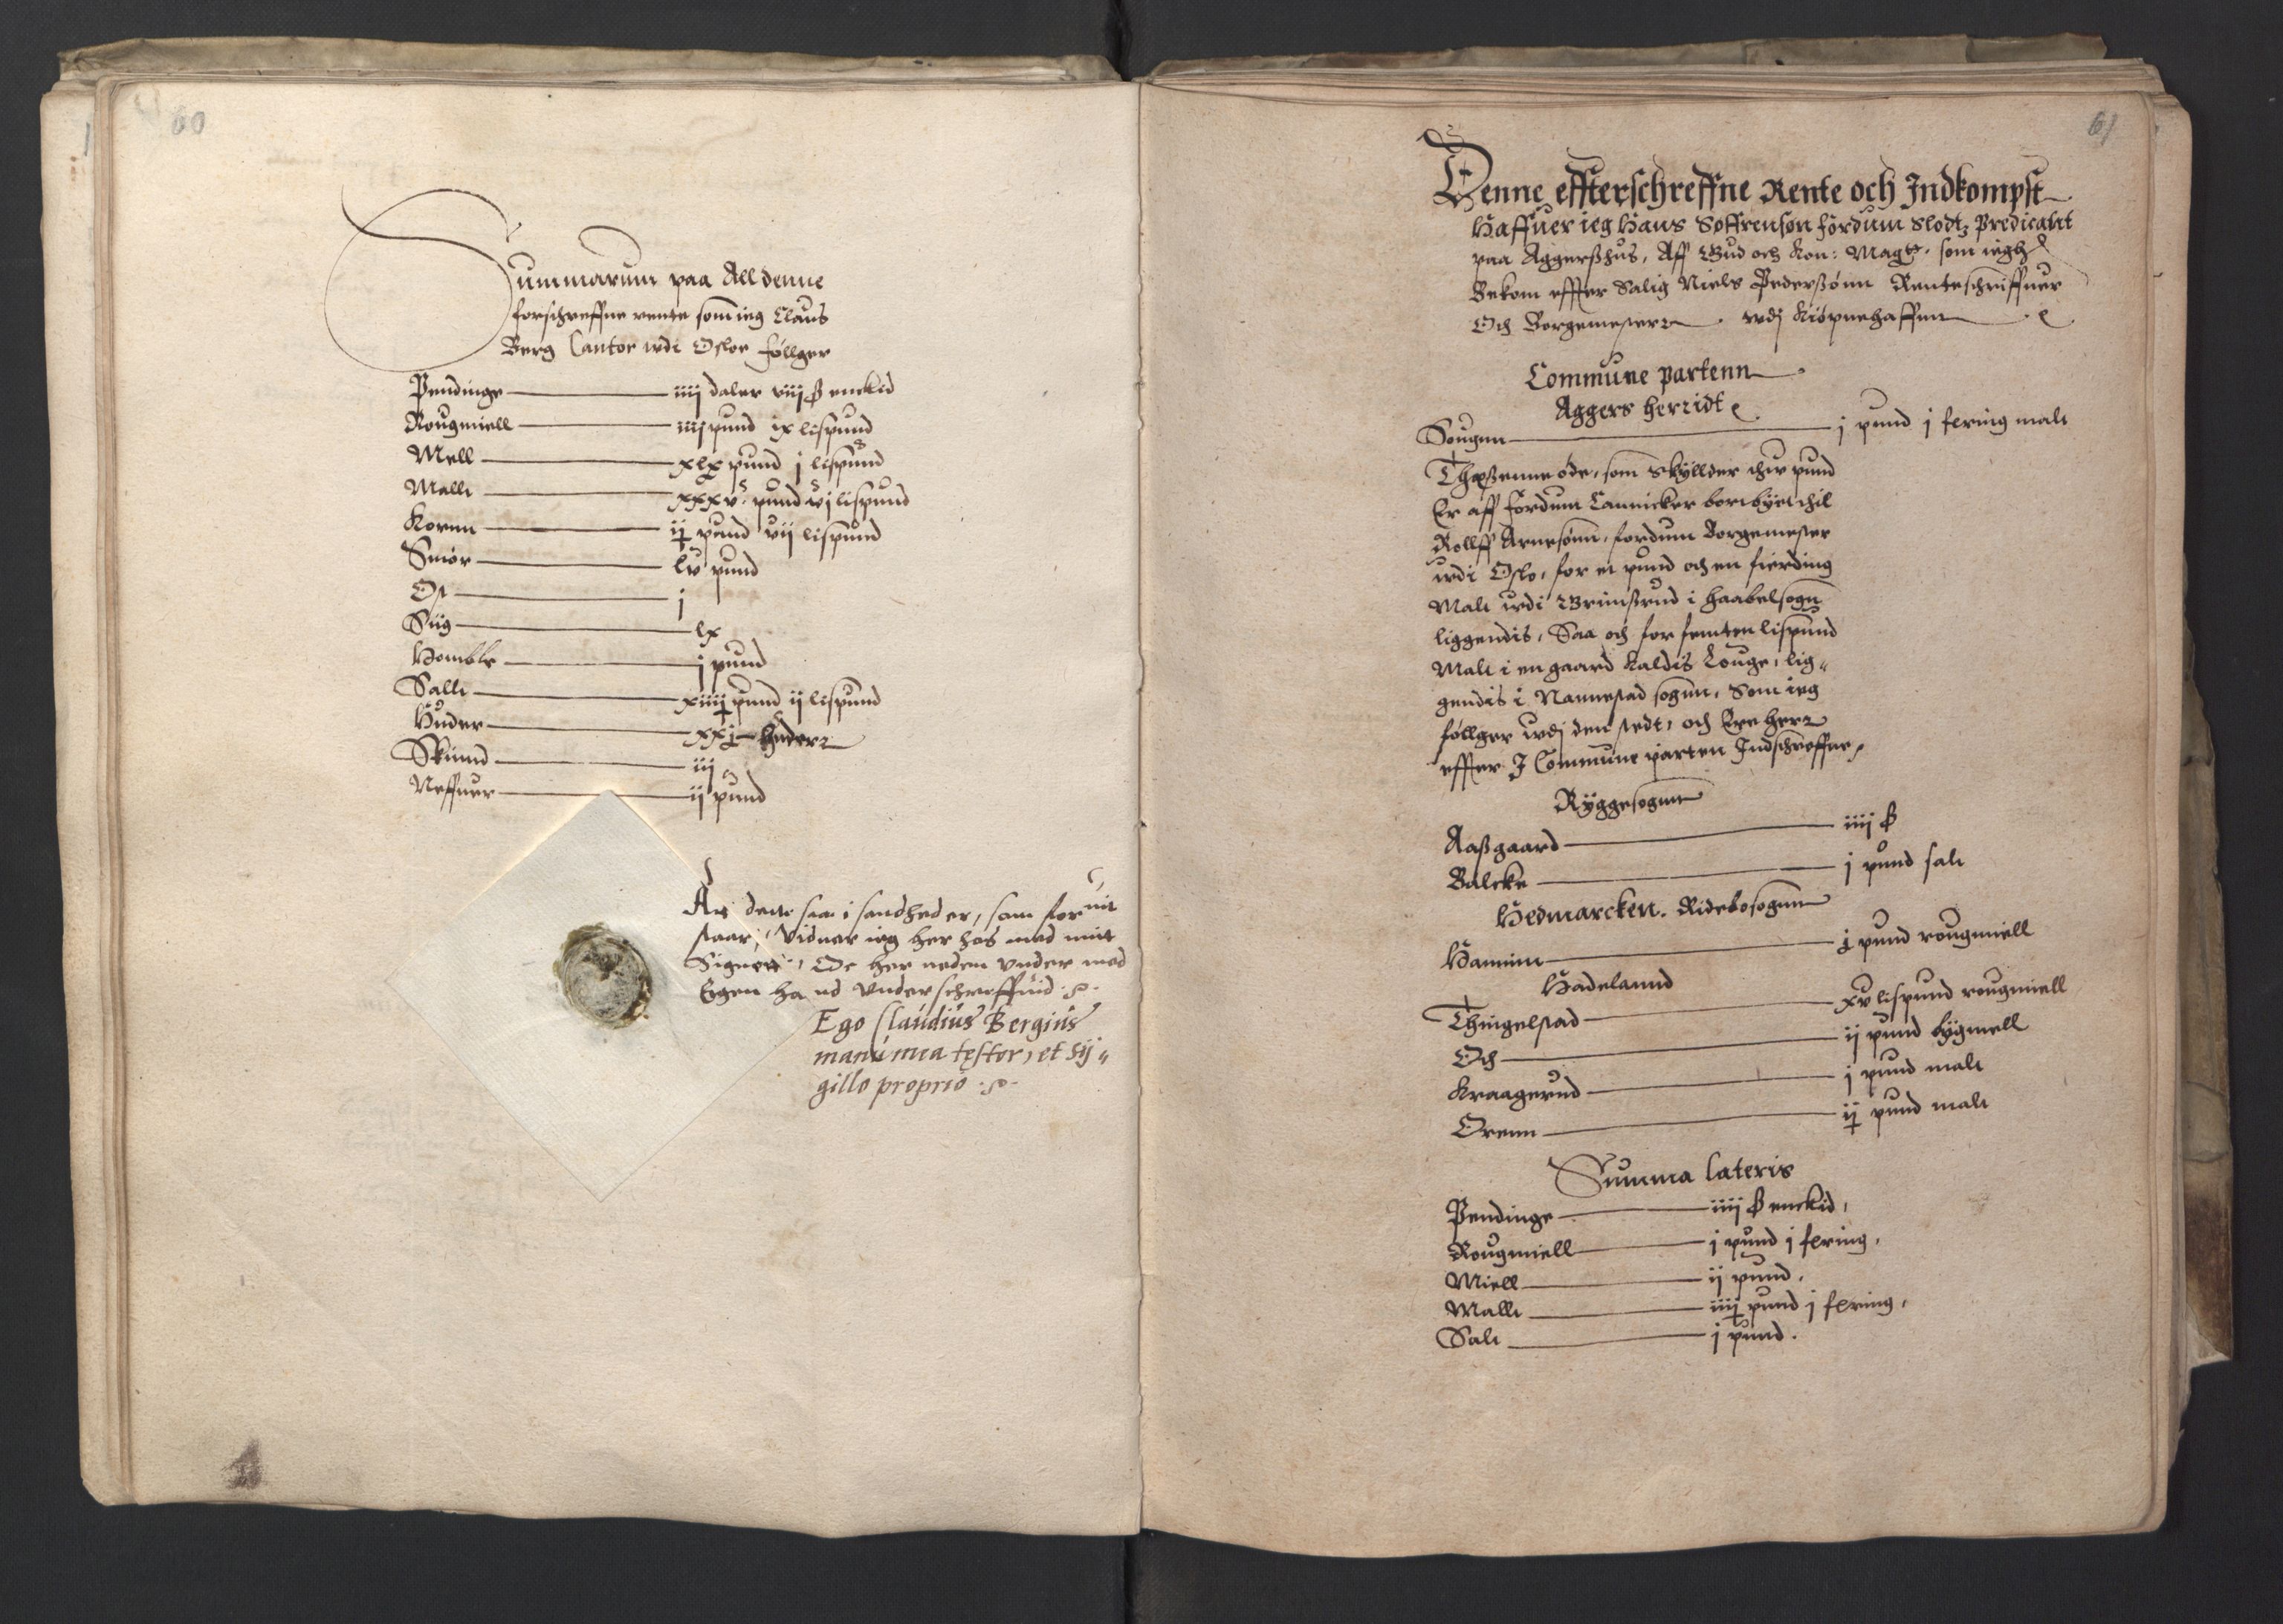 60
Summarum paa All denne
forschreffne rente som ieg Claus
Berg Cantor wdi Osloe föllger
Pendinge iiij daler viij ß enckid
Rougmiell iiij pund ix lispund
Mell xlx pund j lispund
Mallt xxxv pund vj lispund
Kornn ij pund vij lispund
Smör lv pund
Ost j
Siig lx
Homble j pund
Sallt xiiij pund ij lispund
Huder xxj huderr
Skiind iij
Neffuer ij pund
At dette saa i sandhed er, som for uit
staar, Vidner ieg her hos med mit
Signett, Oc her neden vnder med
Egen hand vnderschreffuid
Ego Claudius Bergius
manu mea testor, et sij„
gillo proprio
61
Denne effterschreffne Rente och Indkompst
Haffuer ieg Hans Söffrensøn fordum Slodtz Predicant
paa Aggerßhus, Aff Gud och Kon: Magtt. som iegh
Bekom effter Salig Niels Pederßönn Renteschriffuer
Och Borgemesterr wdj Kiöpnehaffnn
Commune partenn
Aggers herridt
Sougnn j pund j fering malt
Thoßenne öde, som Skyllder thw pund
Er aff fordum Cannicker bortbyet thil
Rollff Arnesönn, fordum Borgemester
wdi Oslo, for et pund och en fierding
Malt wdi Grimßrud i Haabelsogn
liggendis, Saa och for femten lispund
Malt i en gaard kaldis Louge, lig„
gendis i Nannestad sognn, Som ieg
föllger wdj den stedt, och Ere herr
effter I Commune parten Indschreffne
Ryggesognn
Aaßgaard iiij ß
Balcke j pund salt
Hedmarcken. Ridebosognn
Hammn j pund rougmiell
Hadelannd
Thingelstad xv lispund rougmiell
Och ij pund bygmell
Kraagerud j pund malt
Orenn ij pund malt
Summa lateris
Pendinge iiij ß enckid,
Rougmiell j pund j fering,
Miell ij pund,
Mallt iiij pund j fering,
Salt j pund.